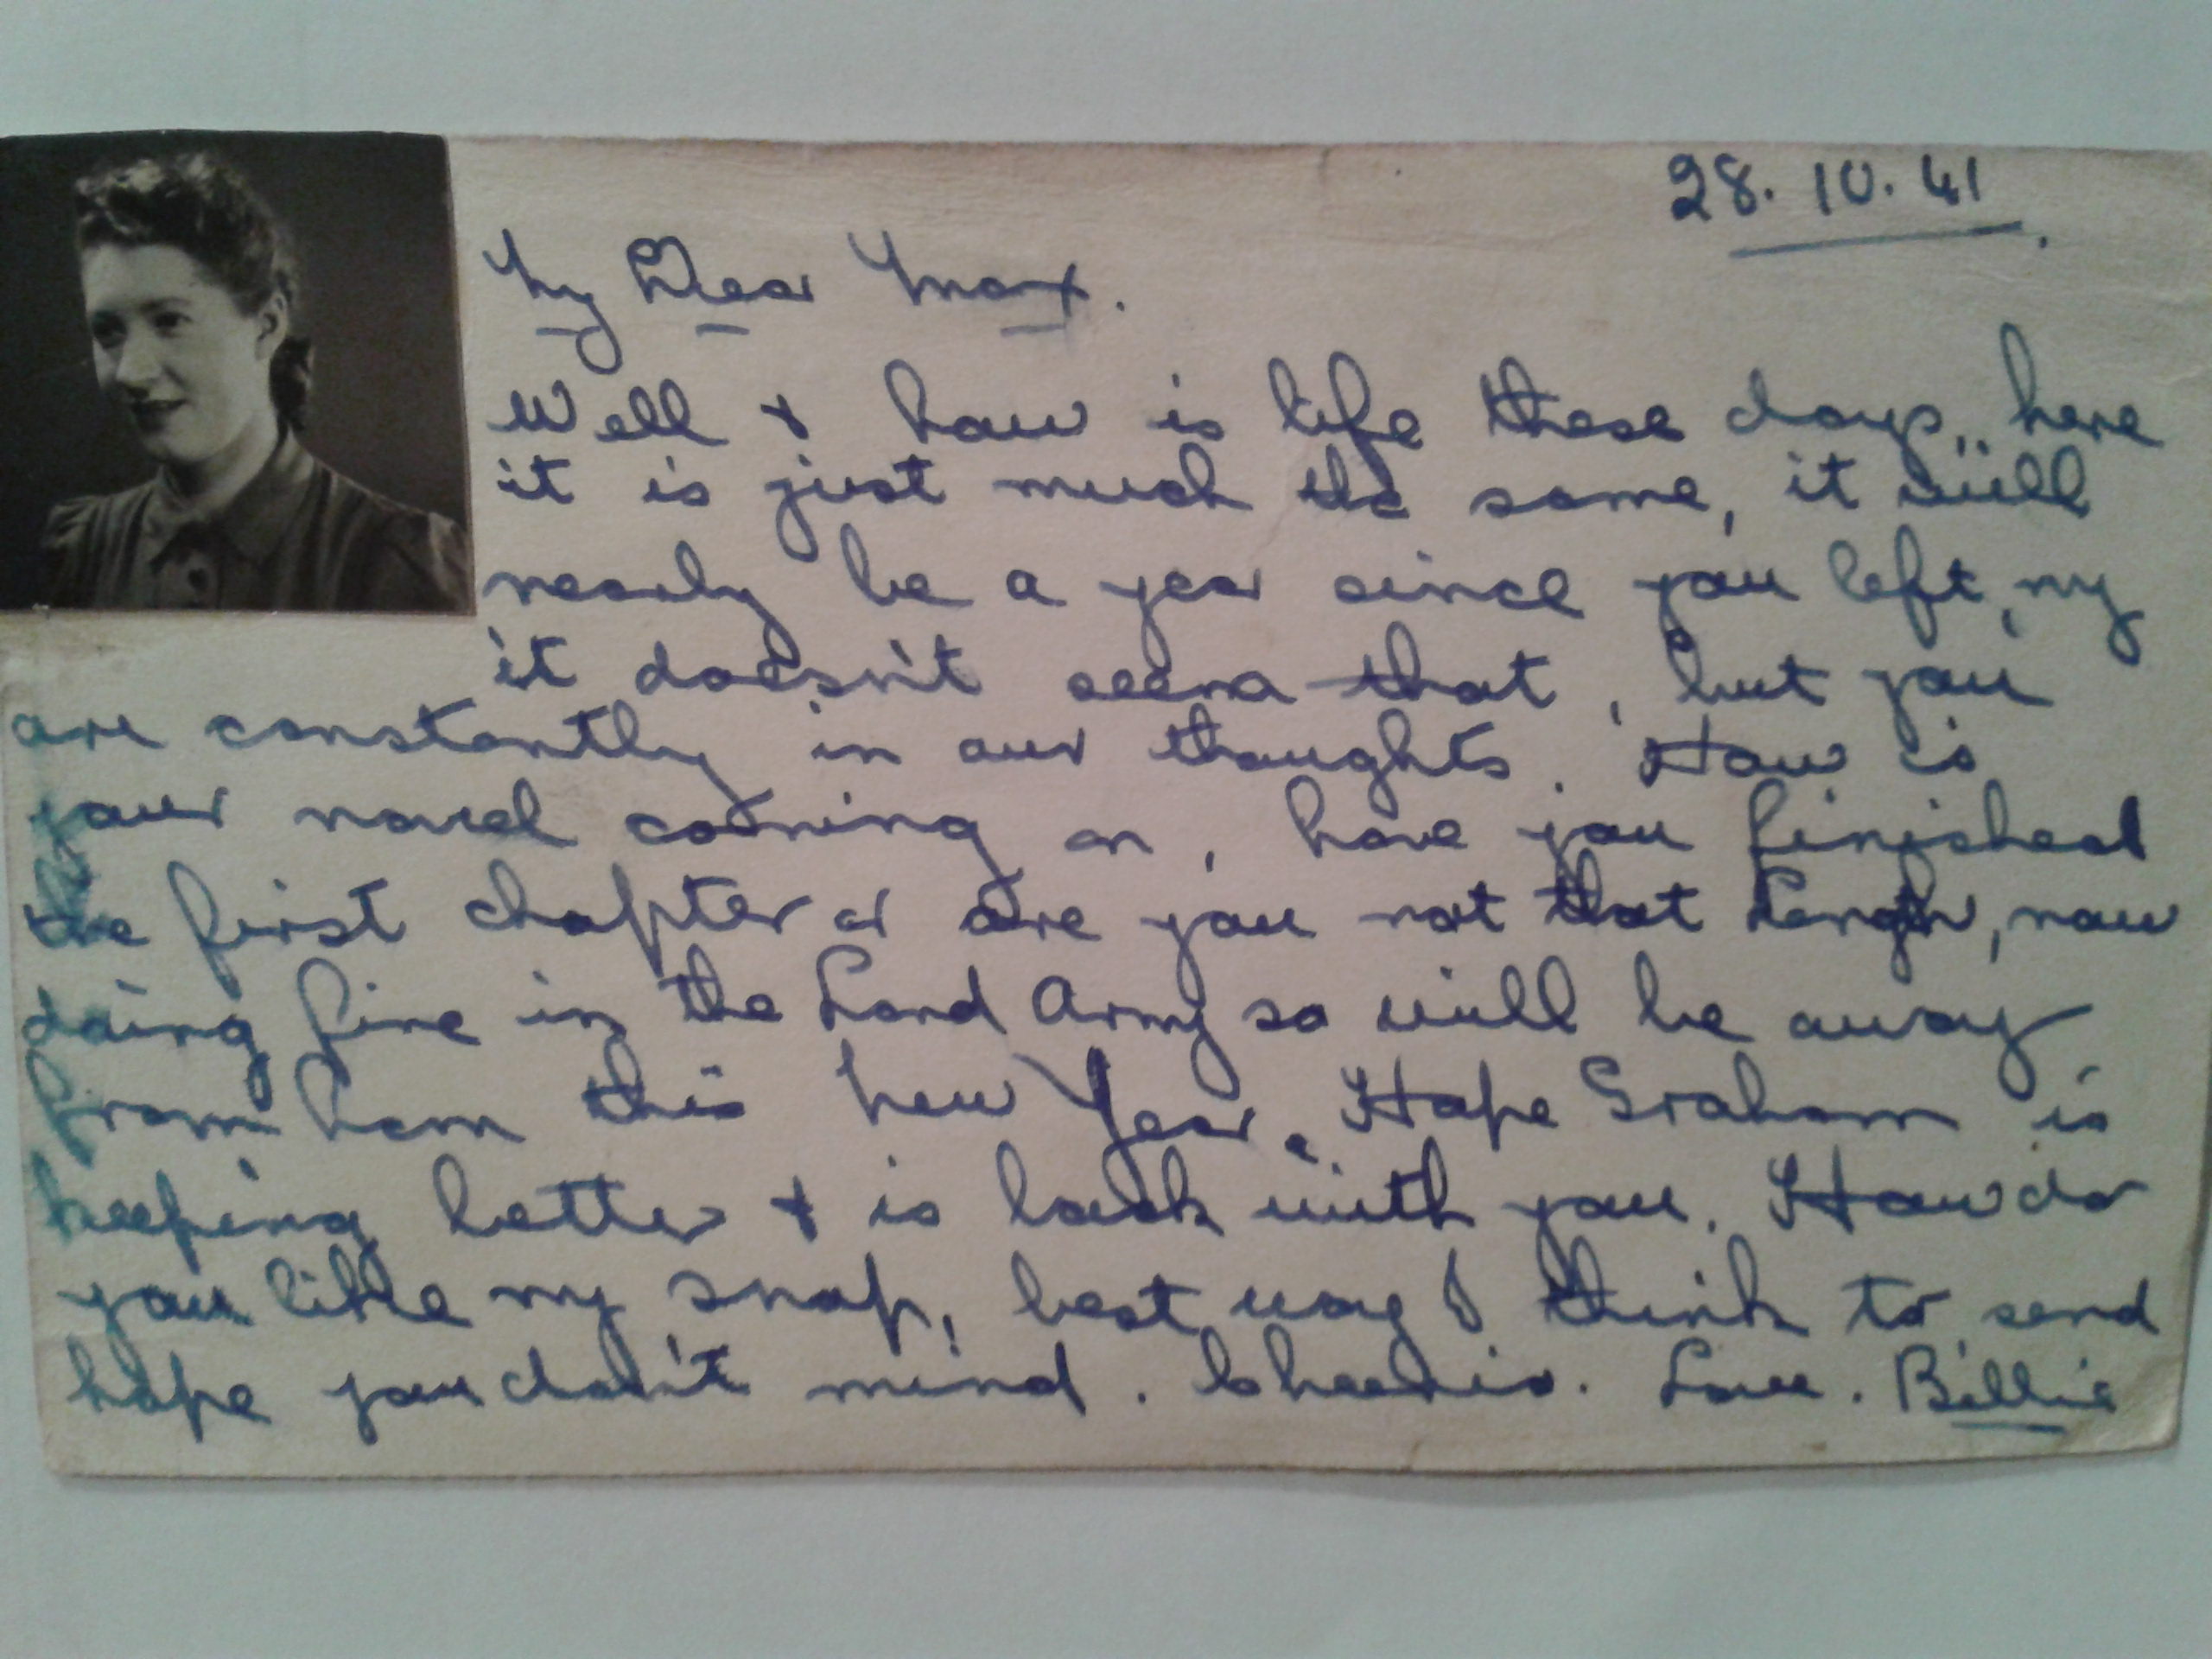 28. 10. 41
My Dear Max.
Well & how is life these days,, here
it is just much the same, it will
nearly be a year since you left, my
it doesn't seem that, but you
are constantly in our thoughts. How is
your novel coming on, have you finished
the first chapter or are you not that Length, now
doing fine in the Land Army so will be away
from hom this New Year. Hope Graham is
keeping better & is back with you. How do
you like my snap, best way I think to send
hope you don't mind. Cheerio. Love. Billie